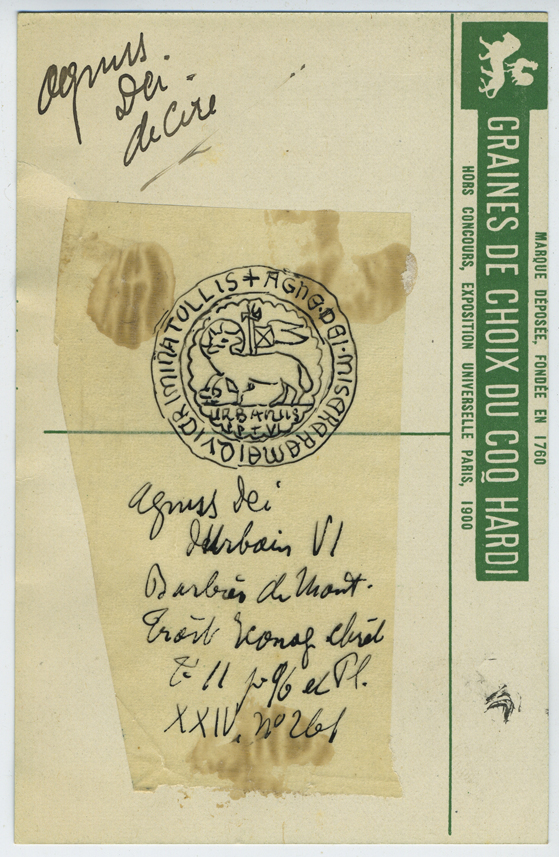 agnus
Dei
de cire
+ AGNE · DEI · MISERERE MEI QVI CRIMINA TOLLIS
URBANUS
PP VI
agnus Dei
d'Urbain VI
Barbier de Mont.
Trait Iconog chrét
T. II p 96 et Pl.
XXIV, nº 261
MARQUE DEPOSÉE, FONDÉE EN 1760
GRAINES DE CHOIX DU COQ HARDI
HORS CONCOURS, EXPOSITION UNIVERSELLE PARIS, 1900